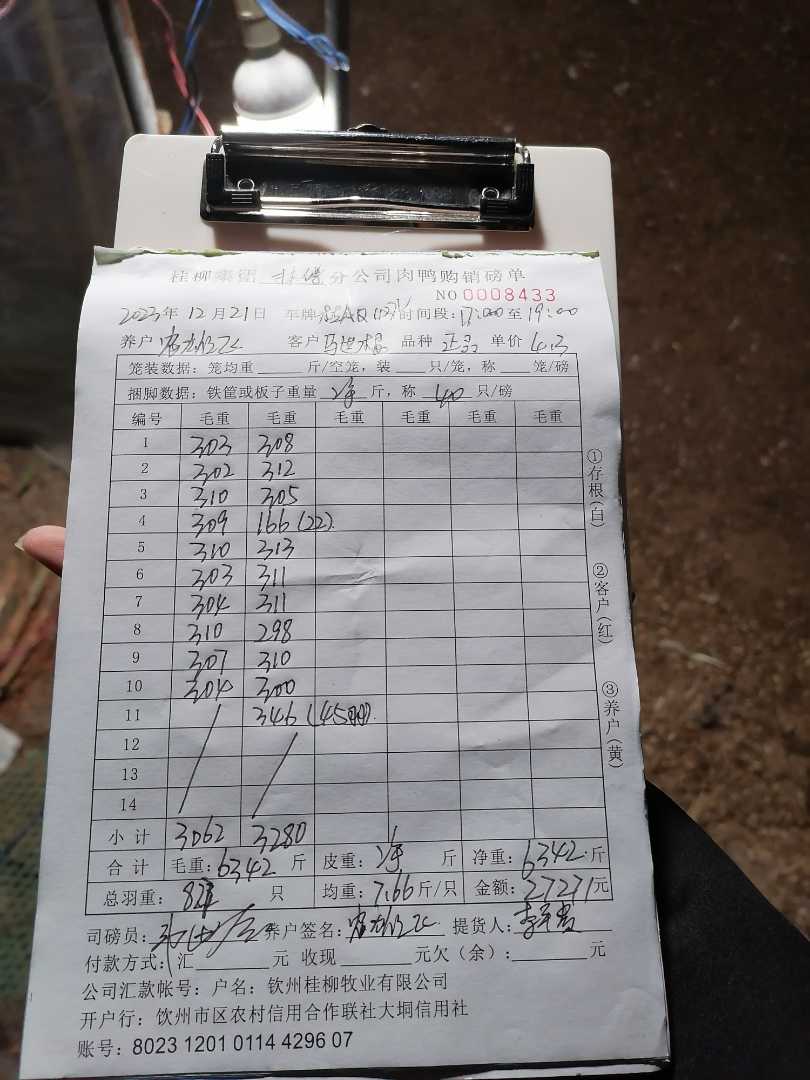 桂柳集团 分公司肉鸭购销磅单
NO 0008433
2023年12月21日 车牌 时间段:17:00至19:00
养户 客户 品种 正品 单价 4.3
笼装数据:笼均重 斤/空笼,装 只/笼,称 笼/磅
捆脚数据:铁筐或板子重量 净 斤,称 40 只/磅
编号 毛重 毛重 毛重 毛重 毛重 毛重
1 303 308
2 302 312
3 310 305
4 309 166(22)
5 310 313
6 303 311
7 304 311
8 310 298
9 307 310
10 304 300
11 346(45)
12
13
14
小计 3062 3280
合计 毛重:6342斤 皮重:净 斤 净重:6342斤
总羽重: 只 均重:7.66斤/只 金额:27271元
司磅员: 养户签名: 提货人:
付款方式:汇 元 收现 元欠(余): 元
公司汇款帐号:户名:钦州桂柳牧业有限公司
开户行:钦州市区农村信用合作联社大垌信用社
账号:8023 1201 0114 4296 07
①存根(白)
②客户(红)
③养户(黄)